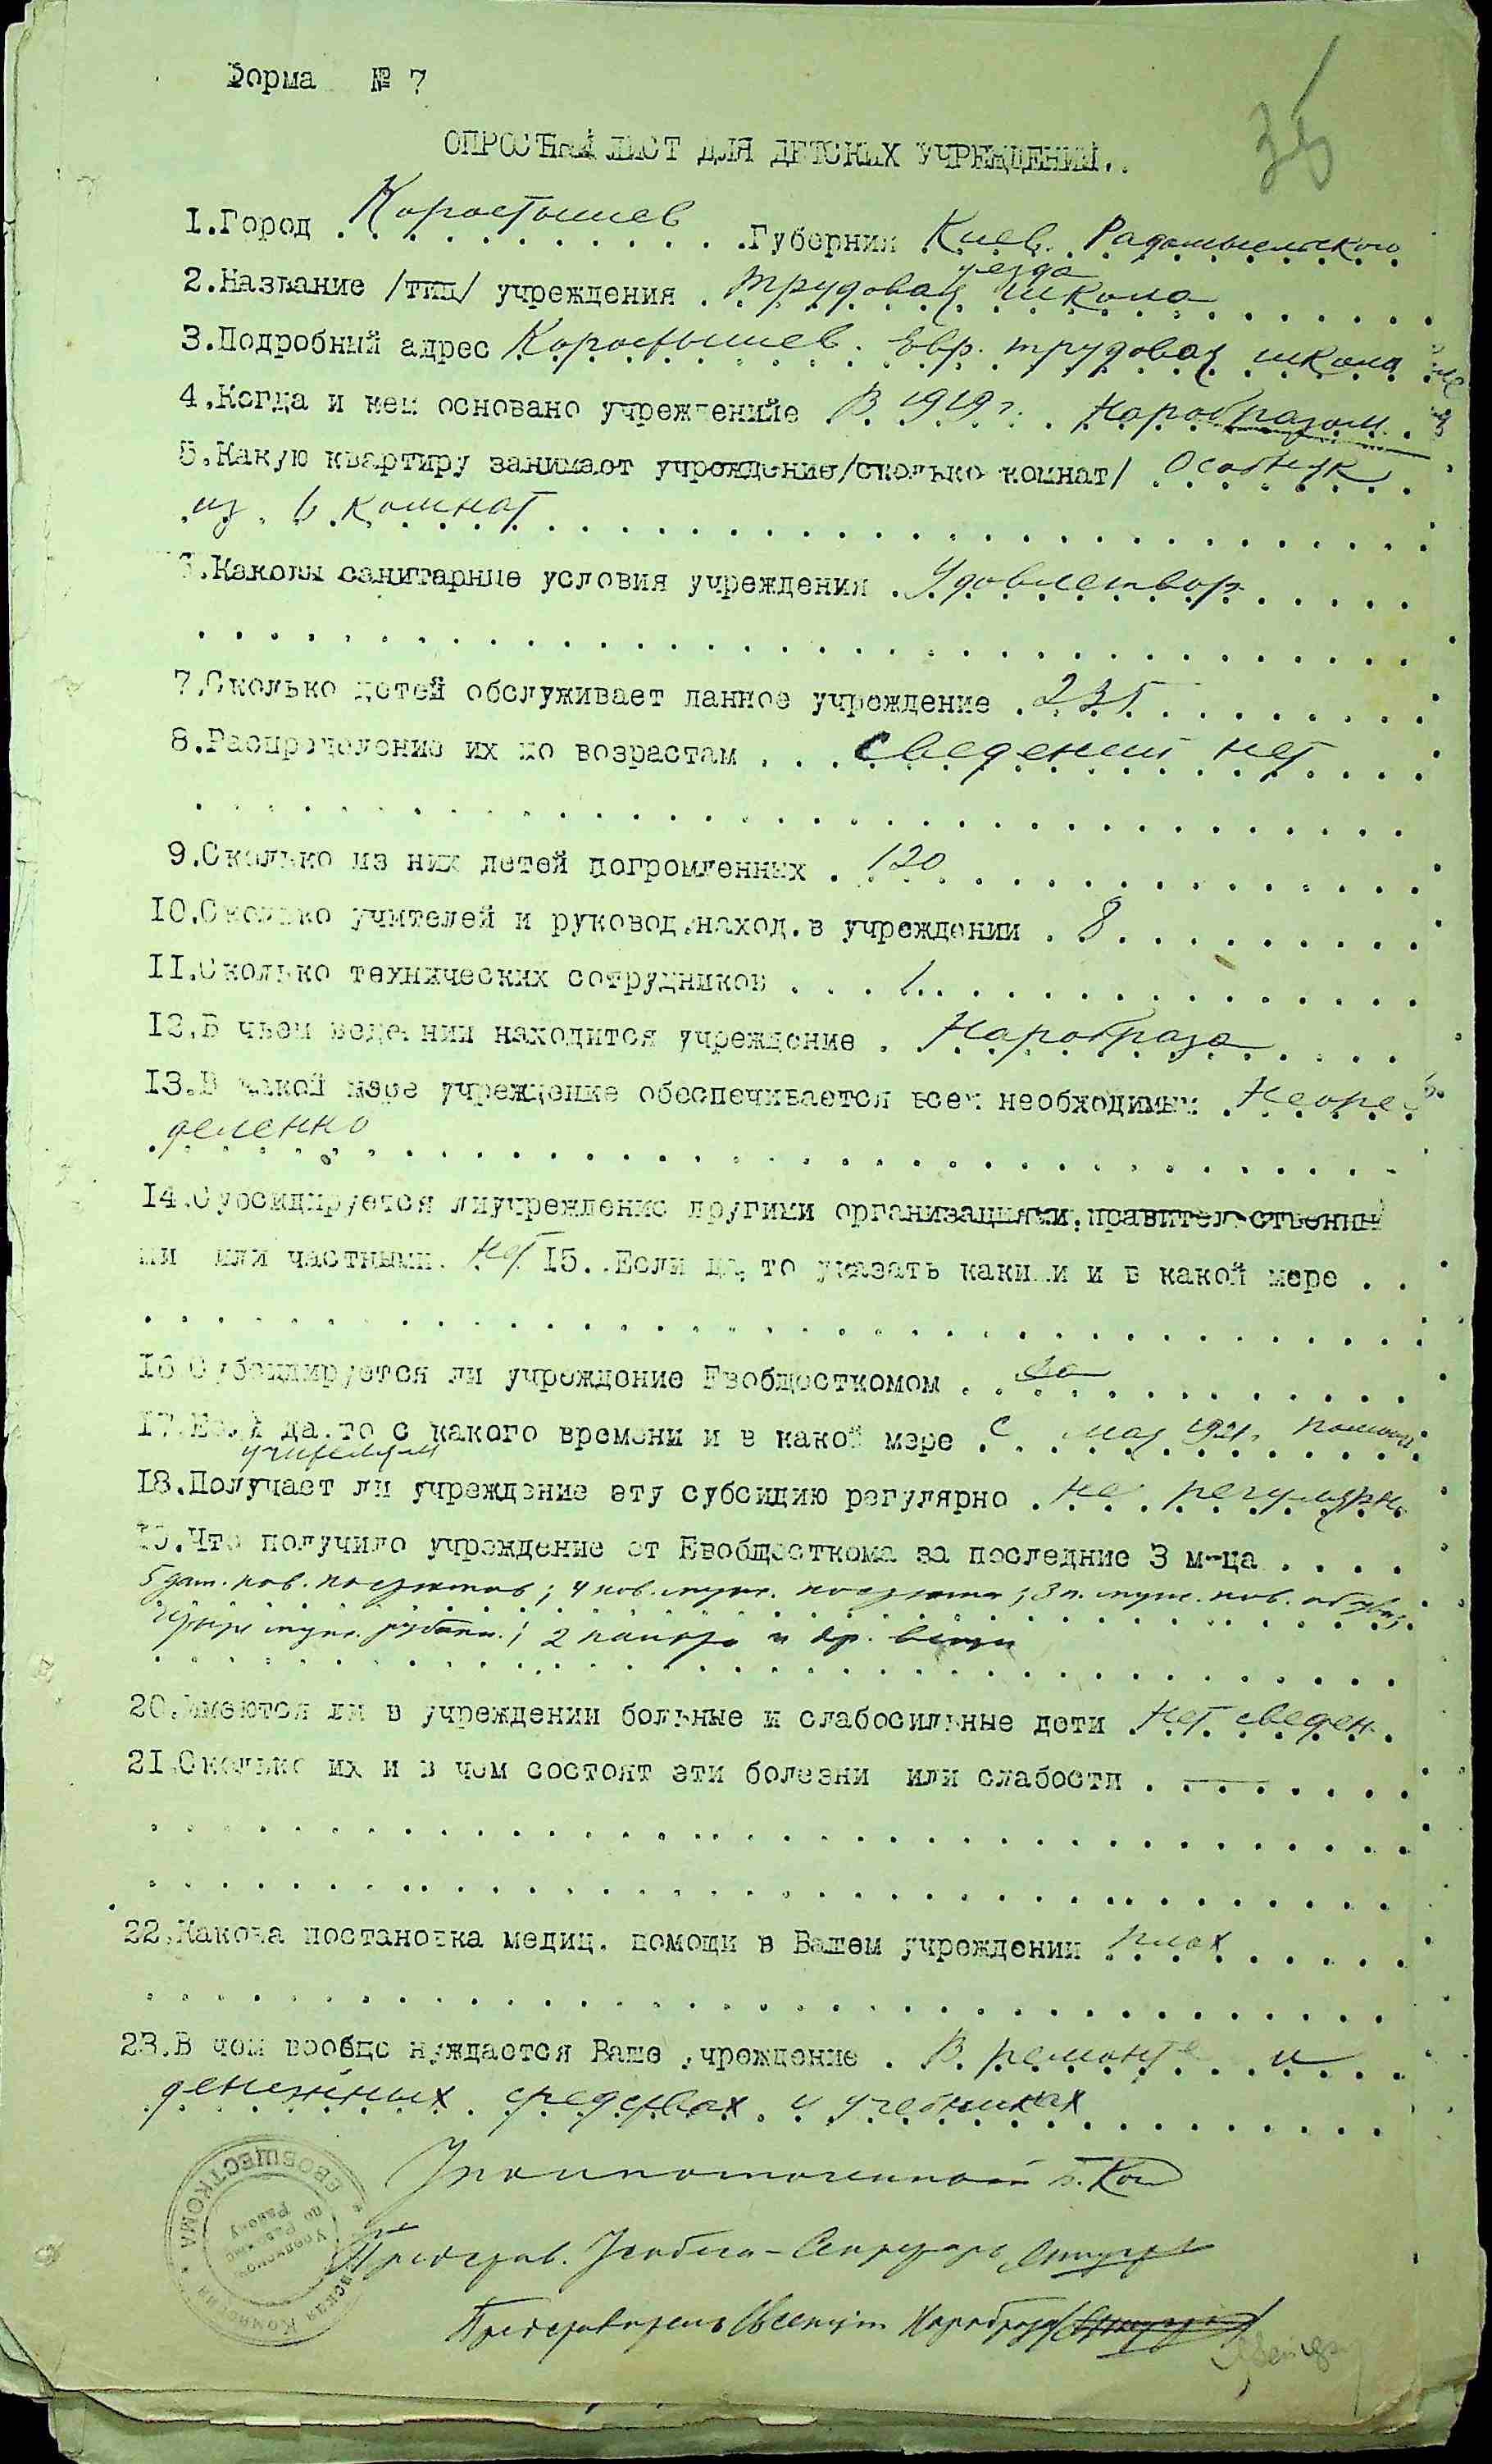 Форма № 7
35
ОПРОСНЫЙ ЛИСТ ДЛЯ ДЕТСКИХ УЧРЕЖДЕНИЙ..
1.Город Коростышев .Губерния Киев. Радомысльского
уезда
2.Название /тип/ учреждения . трудовая школа
3.Подробный адрес Коростышев. Евр. трудовая школа
4.Когда и кем основано учреждение В 1919 г. Наробразом
5.Какую квартиру занимает учреждение/сколько комнат/ Особняк
из 6 комнат
6.Каковы санитарные условия учреждения . Удовлетвор.
7.Сколько детей обслуживает данное учреждение . 235
8.Распределение их по возрастам . . . сведений нет
9.Сколько из них детей погромленных . 120
10.Сколько учителей и руковод.наход.в учреждении . 8
11.Сколько технических сотрудников . . . 1
12.В чьем ведении находится учреждение . Наробраза
13.В какой мере учреждение обеспечивается всем необходимым . Неопре-
деленно
14.Субсидируется лиучреждение другими организациями,правительственны
ми или частными. Нет 15..Если да, то указать какими и в какой мере . .
16.Субсидируется ли учреждение Евобщесткомом . да
17.Если да,то с какого времени и в какой мере . с мая 1921г. помощь
учителям
18.Получает ли учреждение эту субсидию регулярно . не регулярн.
19.Что получило учреждение от Евобщесткома за последние 3 м-ца . . . .
5 дам. нов. костюмов; 4 нов. муж. костюма; 3 п. муж. нов. обуви;
муж. рубаш.; 2 пальто и др. вещи
20.Имеются ли в учреждении больные и слабосильные дети . Нет сведен.
21.Сколько их и в чем состоят эти болезни или слабости . —
22.Какова постановка медиц. помощи в Вашем учреждении плох
23.В чем вообще нуждается Ваше учреждение . В ремонте и
денежных средствах и учебниках
Уполномоченный
Представ. Секретарь
Представитель Наробраза
ЕВОБЩЕСТКОМА
Комиссия
по
Району